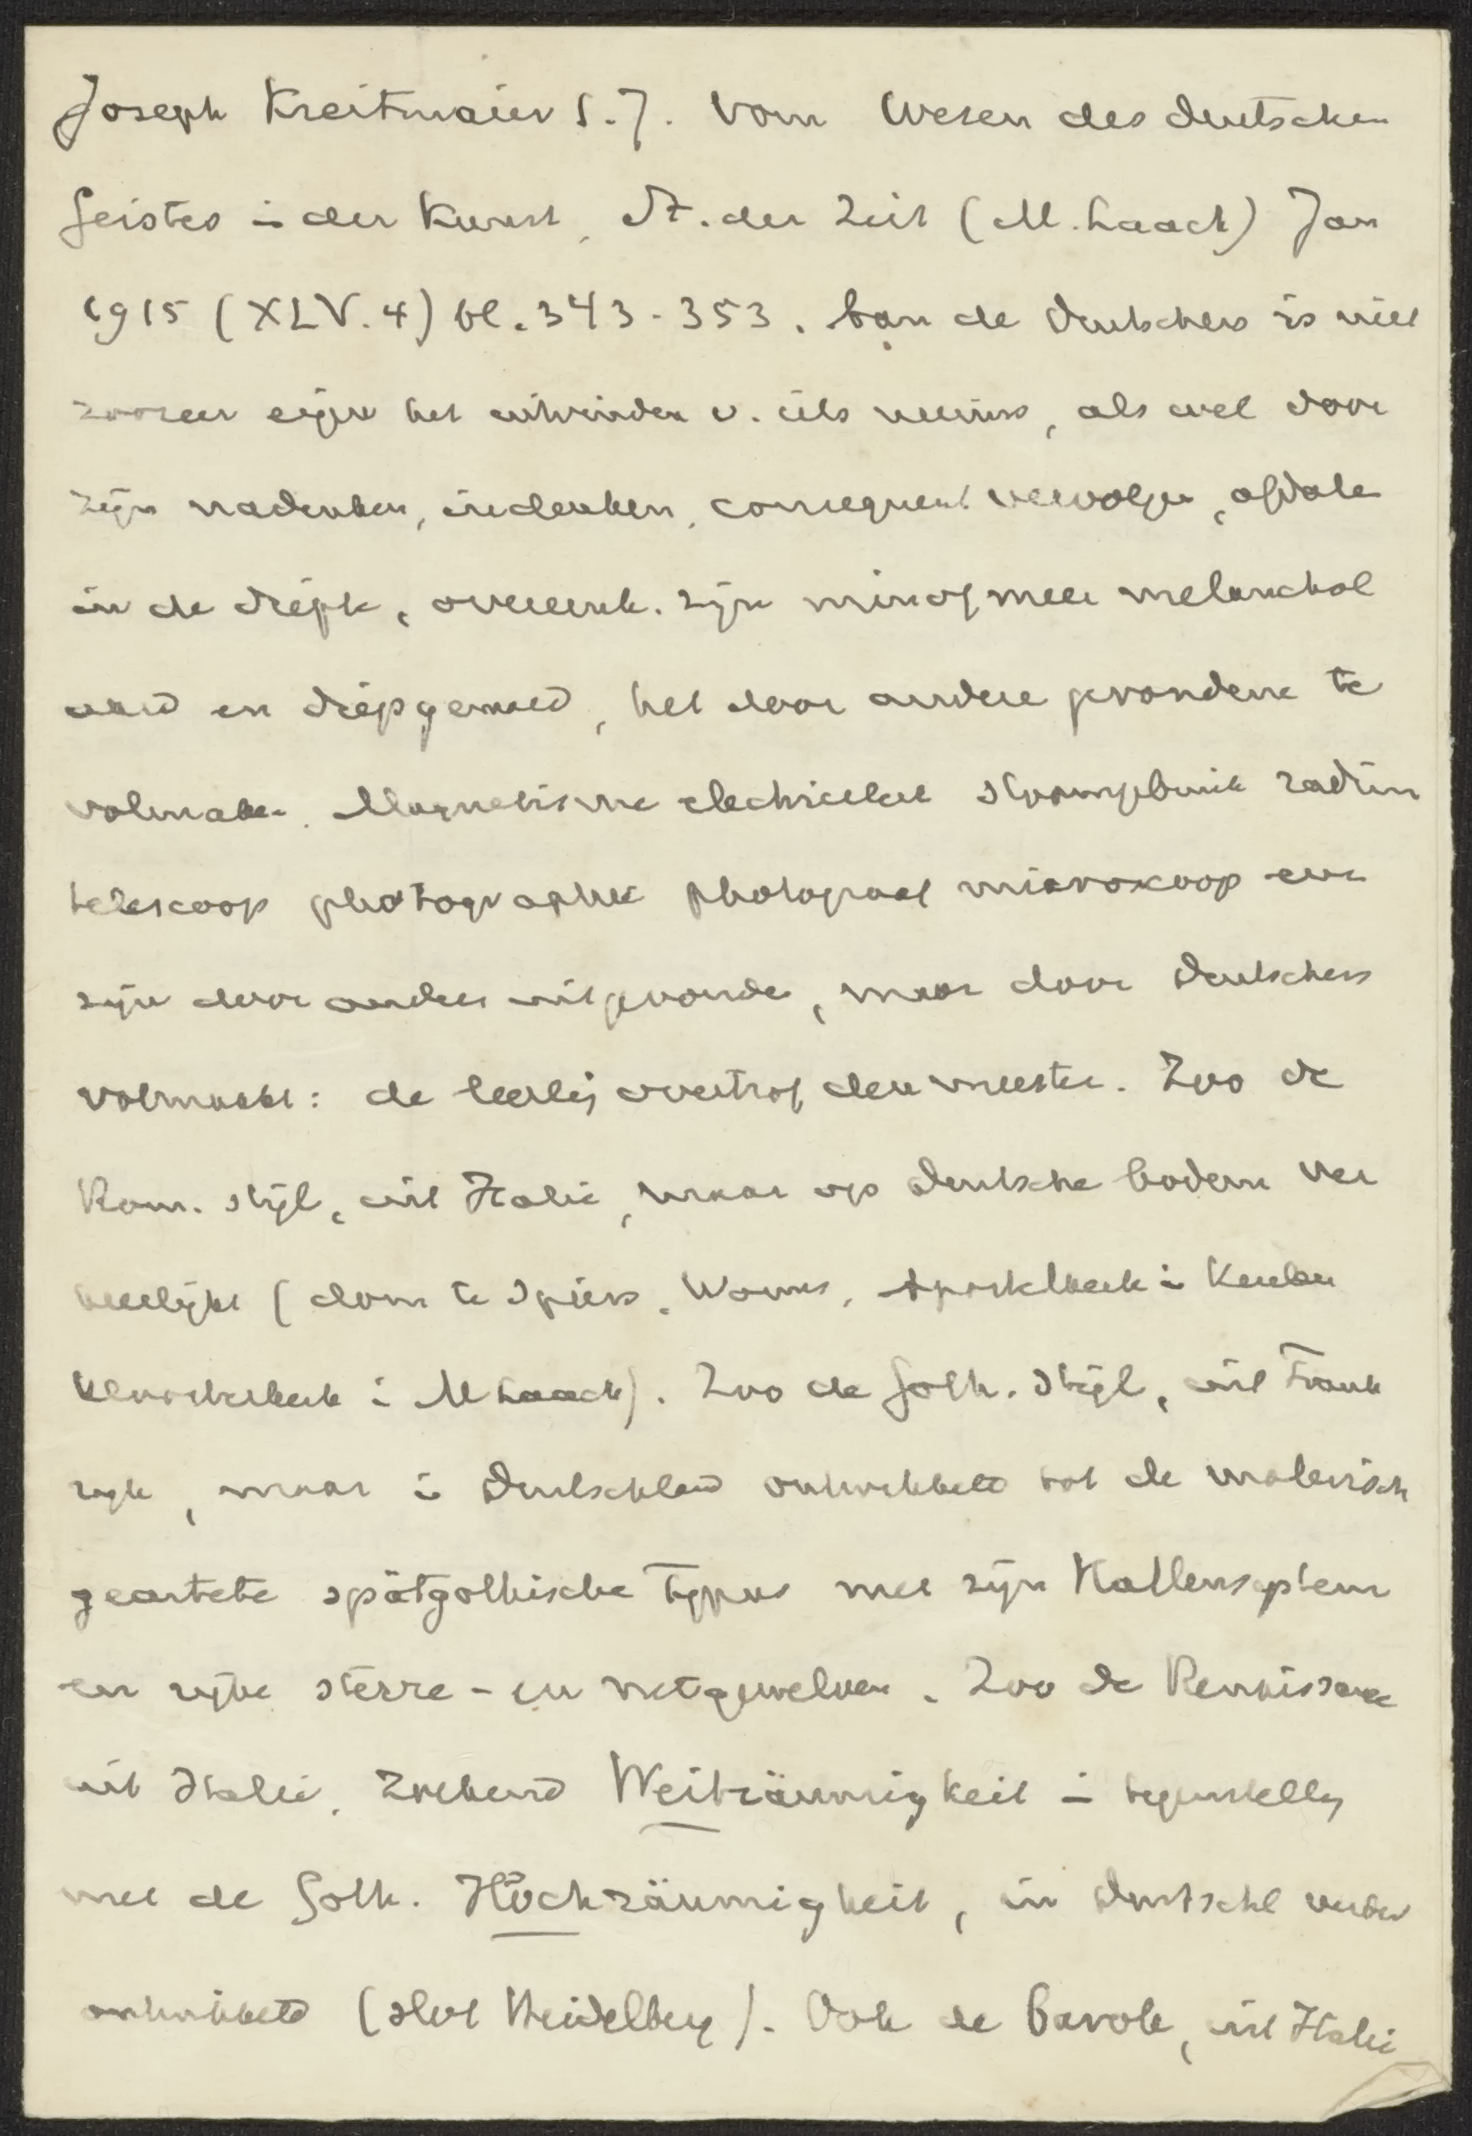 Joseph Kreitmaier S.J. Vom Wesen des deutschen
Geistes i der Kunst, St. der Zeit (M. Laach) Jan
1915 (XLV.4) bl. 343-353. aan de Duitschers is niet
zoozeer eigen het uitvinden v. iets nieuws, als wel door
zijn nadenken, indenken, consequent vervolgen, afdale
in de diepte, overeenk. zijn min of meer melanchol
aard en diepgemoed, het door andere gevondene te
volmaken. Magnetisme electriciteit stoompbuik radium
telescoop photographie photograaf microscoop enz
zijn door anders uitgevonde, maar door Duitschers
volmaakt: de leerling overtrof den meester. Zoo de
Rom. stijl, uit Italie, maar op Duitsche bodem ver
heerlijkt (dom te Spiers, Worms, Apostelkerk i Keulen
Kloosterkerk i M Laach). Zoo de Goth. stijl, uit Frank
rijk, maar i Duitschland ontwikkeld tot de malerisch
geartete spätgothische Typus met zijn Hallensystem
en rijke sterre- en netgewelven. Zoo de Renaissance
uit Italie, zoekend Weiträumigkeit i tegenstellg
met de Goth. Hochräumigkeit, in Duitschl verder
ontwikkeld (slot Heidelberg). Ook de Barok, uit Italie